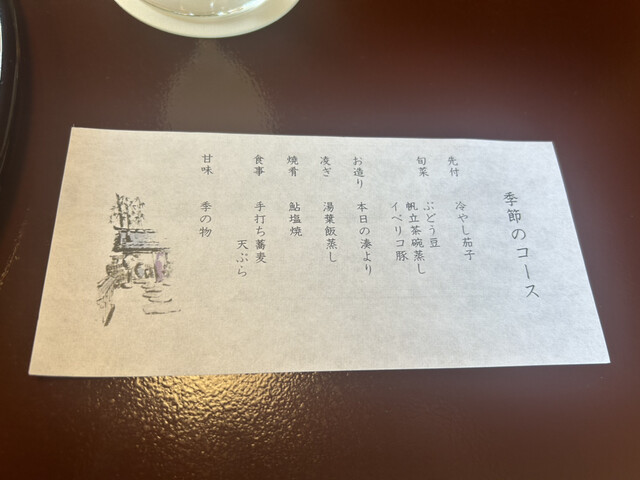 季節のコース
先付　冷やし茄子
旬菜　ぶどう豆
帆立茶碗蒸し
イベリコ豚
お造り　本日の湊より
凌ぎ　湯葉飯蒸し
焼肴　鮎塩焼
食事　手打ち蕎麦
天ぷら
甘味　季の物